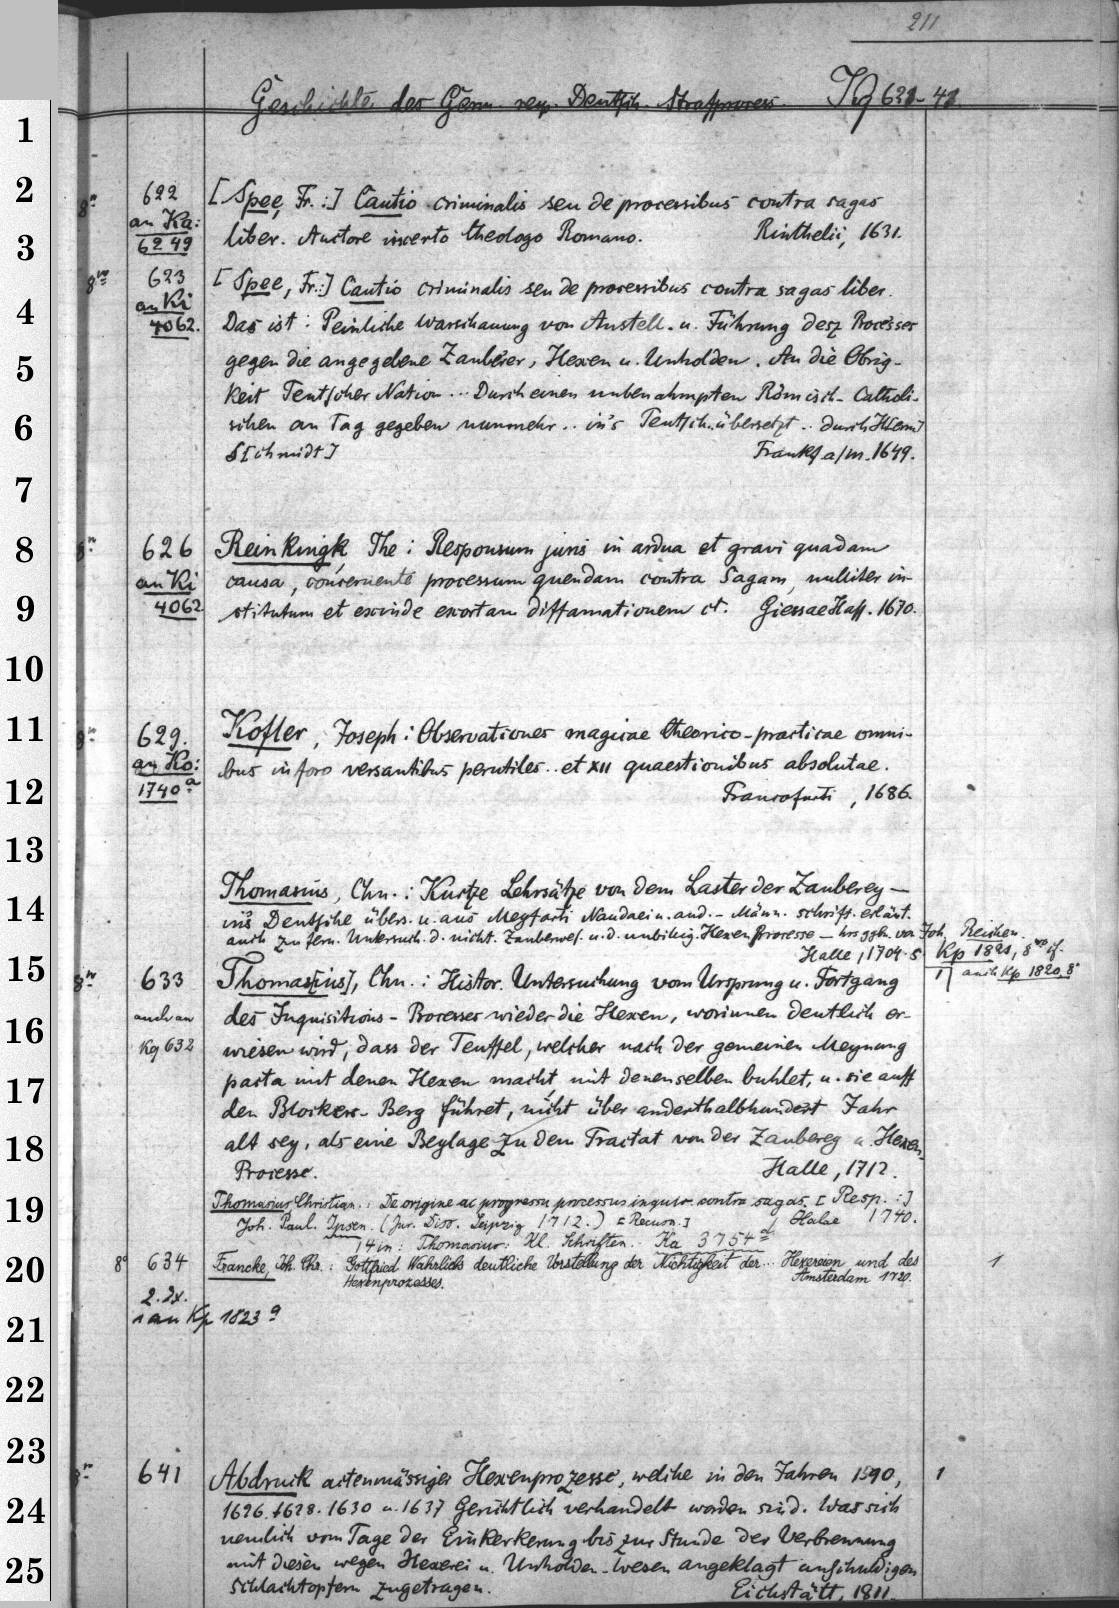 211
Geschichte des Germ. resp. Deutsch. Strafprocess. Kq 621-41
1
2
3
4
5
6
7
8
9
10
11
12
13
14
15
16
17
18
19
20
21
22
23
24
25
8º 622 [Spee, Fr.:] Cautio criminalis seu de processibus contra sagas
an Ka: 6249 liber. Auctore incerto theologo Romano. Rinthelii, 1631.
8vo 623 [Spee, Fr.:] Cautio criminalis seu de processibus contra sagas liber.
an Ki 4062. Das ist: Peinliche Warschauung von Anstell. u. Führung desz Processes
gegen die angegebene Zauberer, Hexen u. Unholden. An die Obrig-
keit Teutscher Nation ... Durch einen unbenahmpten Römisch-Catholi-
schen an Tag gegeben nunmehr .. in's Teutsch. übersetzt .. durch H[erm]
S[chmidt] Frankf a/m. 1649.
8º 626 Reinkingk, The: Responsum juris in ardua et gravi quadam
an Ki causa, concernente processum quendam contra Sagam, nulliter in-
4062 stitutum et exinde exortam diffamationem ct. Giessae Hass. 1670.
8º 629. Kofler, Joseph: Observationes magicae theorico-practicae omni-
an Ko: bus in foro versantibus perutiles .. et XII quaestionibus absolutae.
1740a Francofurti, 1686.
Thomasius, Chn.: Kurtze Lehrsätze von dem Laster der Zauberey —
in's Deutsche übers. u. aus Meyfarti Naudaei u. and. - Männ. schrift. erläut.
auch zu fern. Untersuch. d. nicht. Zauberwes. u. d. unbillig. Hexen Processe — hrsggbn. von Joh. Reichen.
Halle, 1704. Kp 1821, 8vo
auch Kp 1820, 8º
8º 633 Thomas[ius], Chn.: Histor. Untersuchung vom Ursprung u. Fortgang
auch an des Inquisitions-Processes wieder die Hexen, worinnen deutlich er-
Kq 632 wiesen wird, dass der Teuffel, welcher nach der gemeinen Meynung
pacta mit denen Hexen macht, mit denenselben buhlet, u. sie auff
den Blockers-Berg führet, nicht über anderthalbhundert Jahr
alt sey, als eine Beylage zu dem Tractat von der Zauberey u. Hexen
Processe. Halle, 1712.
Thomasius Christian.: De origine ac progressu processus inquis. contra sagas. [Resp.:]
Joh. Paul. Ipsen. (Jur. Diss. Leipzig 1712.) [Recus.] Halae 1740.
14 in: Thomasius: Kl. Schriften. Ka 3754
8º 634 Francke, Joh. Chr.: Gottfried Wahrlieb deutliche Vorstellung der Nichtigkeit der ... Hexereien und des 1
Hexenprozesses. Amsterdam 1720.
2. Ex.
1 an Kp 1823
8º 641 Abdruck actenmässiger Hexenprozesse, welche in den Jahren 1590, 1
1626. 1628. 1630 u. 1637 Gerichtlich verhandelt worden sind. Was sich
nemlich vom Tage der Einkerkerung bis zur Stunde der Verbrennung
mit diesen wegen Hexerei u. Unholden-Wesen angeklagt unschuldigen
Schlachtopfern zugetragen. Eichstätt, 1811.